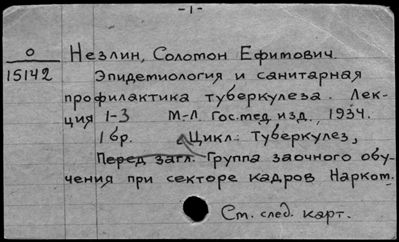 -1-
О
15142
Незлин, Соломон Ефимович.
Эпидемиология и санитарная
профилактика туберкулеза. Лек-
ция 1-3 М-Л. Гос.мед.изд., 1934.
1бр. Цикл: Туберкулез,
Перед загл. Группа заочного обу-
чения при секторе кадров Наркот.
См. след. карт.